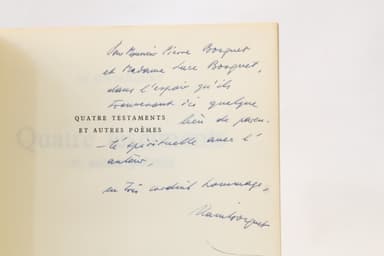 Pour Monsieur Pierre Bosquet
et Madame Luce Bosquet,
dans l'espoir qu'ils
trouveront ici quelque
lien de paren-
QUATRE TESTAMENTS
ET AUTRES POÈMES
té spirituelle avec l'
auteur,
en très cordial hommage,
Alain Bosquet